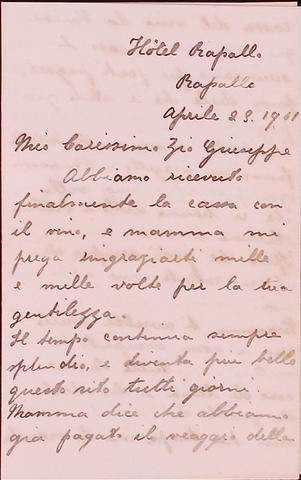 Hôtel Rapallo
Rapallo
Aprile 23. 1901
Mio Carissimo Zio Giuseppe
Abbiamo ricevuto
finalmente la cassa con
il vino, e mamma mi
prega ringraziarti mille
e mille volte per la tua
gentilezza.
Il tempo continua sempre
splendio, e diventa più bello
questo sito tutti giorni
Mamma dice che abbiamo
già pagato il viaggio della